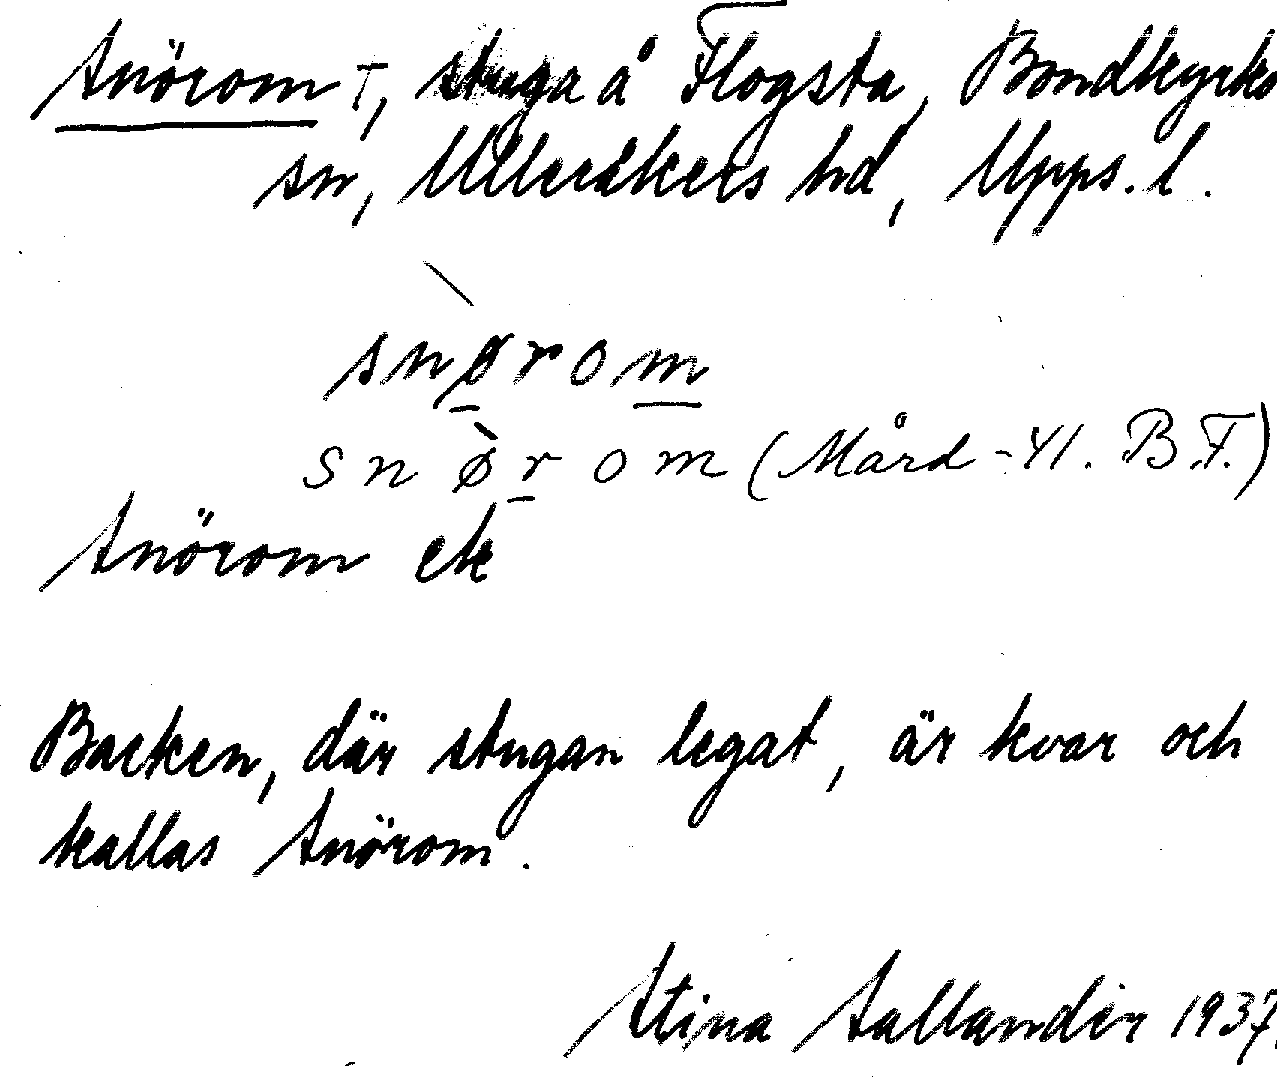 Snörom †, stuga å Flogsta, Bondkyrko
sn, Ulleråkers hd, Upps. l.
snørom
snø̀rom (Mård -41. B.F.)
Snörom ek
Backen, där stugan legat, är kvar och
kallas Snörom.
Stina Sallander 1937.